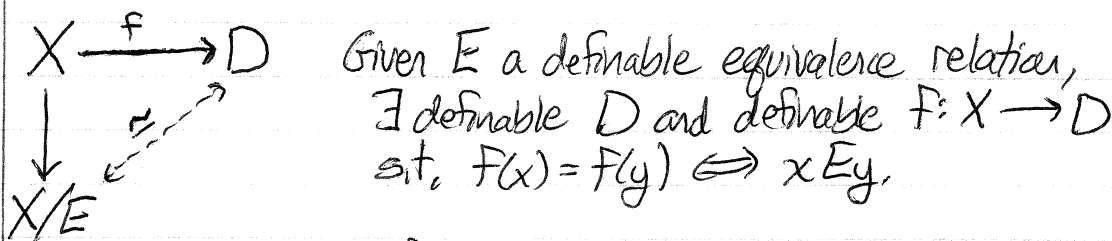 X f D Given E a definable equivalence relation,
∃ definable D and definable f: X → D
≅ s.t. f(x) = f(y) ⟺ xEy.
X/E